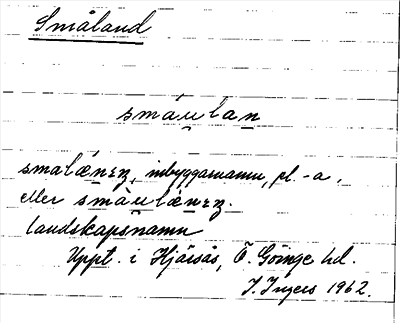 Småland
småu̯lan
smålæ̀nɪʐ, inbyggarnamn, pl. -a,
eller småu̯læ̀nɪʐ.
landskapsnamn
Uppt. i Hjärsås, Ö. Göinge hd.
I. Ingers 1962.